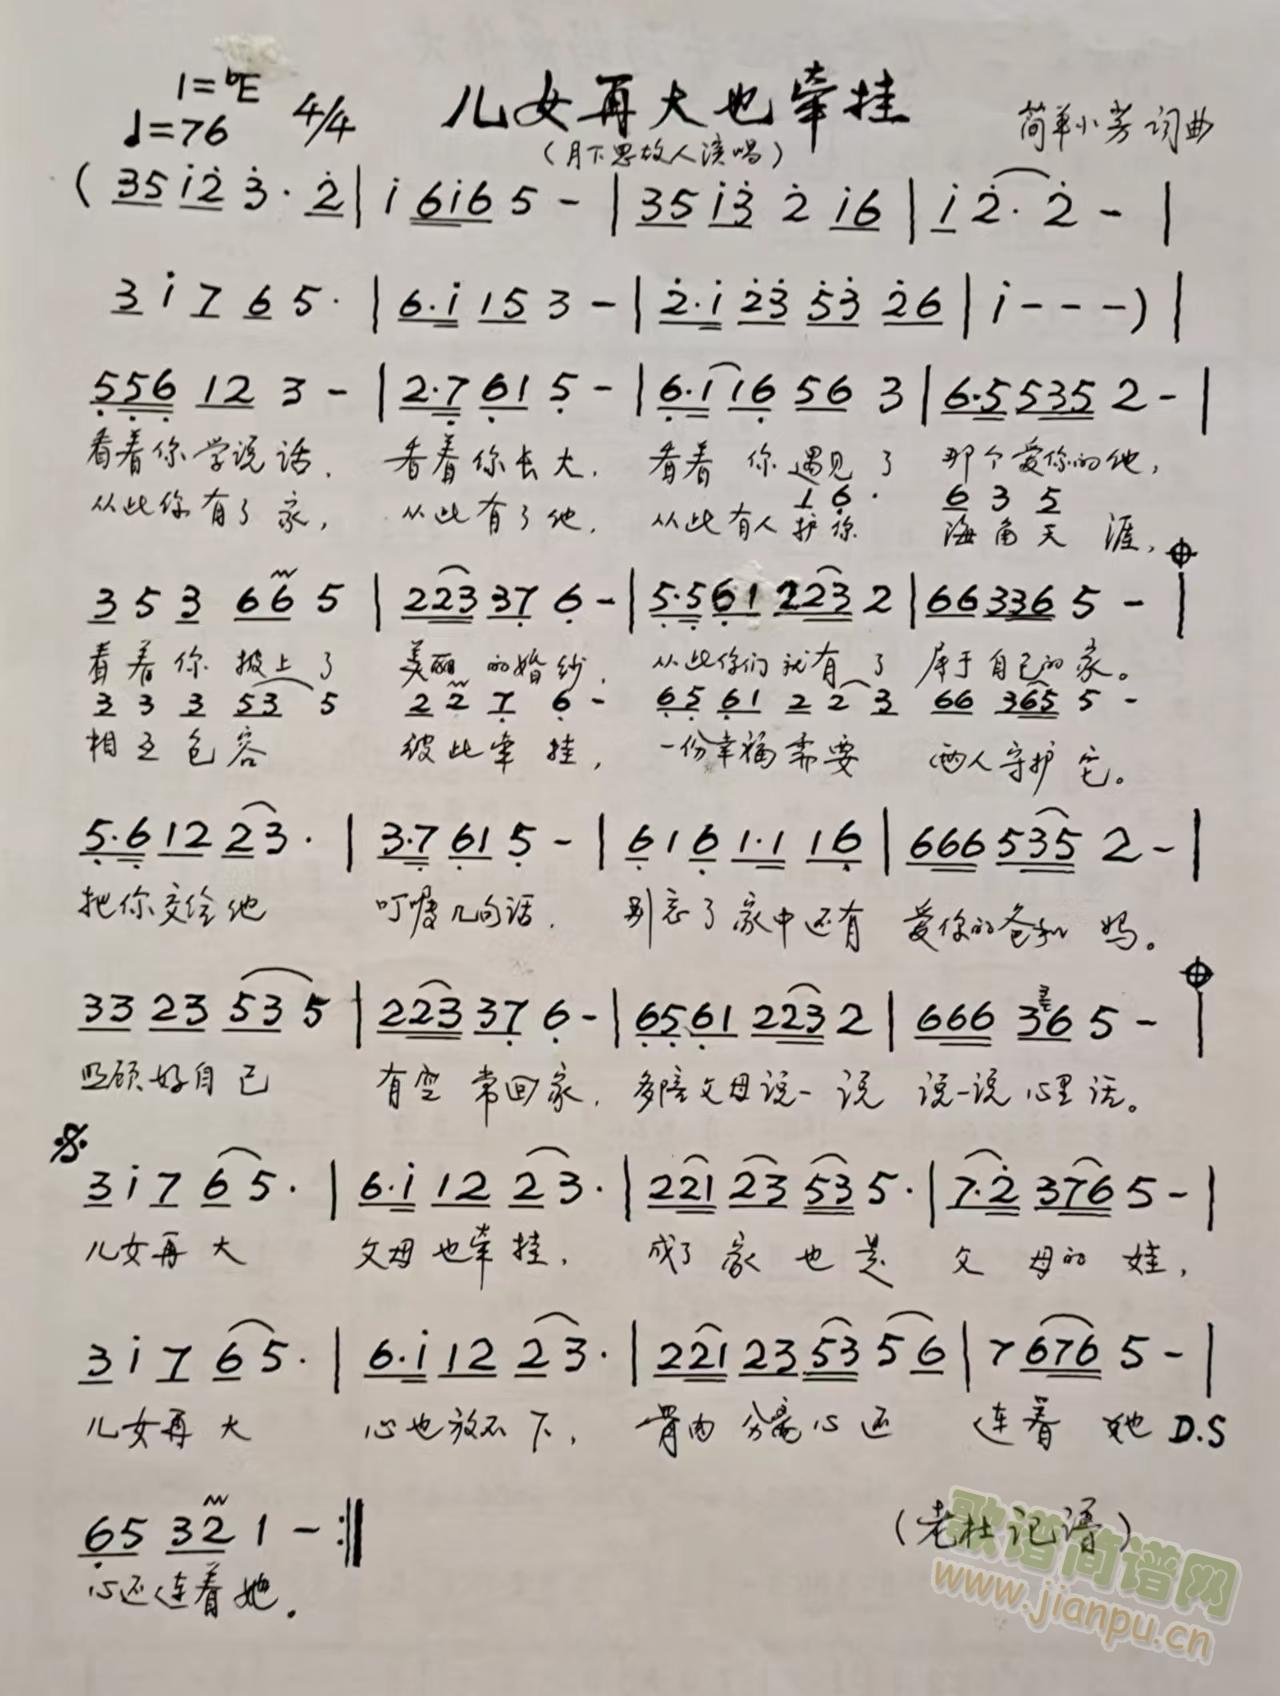 1=♭E
♩=76
4/4
儿女再大也牵挂
(月下思故人演唱)
简单小芳词曲
( 35 i̇2̇ 3̇· 2̇ | i̇ 6i̇6 5 - | 35 i̇3̇ 2̇ i̇6 | i̇ 2̇· 2̇ - |
3 i̇ 7 6 5· | 6·i̇ 15 3 - | 2̇·i̇ 2̇3̇ 5̇3̇ 2̇6 | i̇ - - - ) |
5̣5̣6̣ 12 3 - | 2·7̣ 6̣1 5̣ - | 6̣·1 16̣ 56 3 | 6·5 535 2 - |
看着你学说话, 看着你长大, 看着你遇见了 那个爱你的他,
1 6̣· 6 3 5
从此你有了家, 从此有了他, 从此有人护你 海角天涯,
3 5 3 66 5 | 223 37̣ 6̣ - | 5̣·5̣ 6̣1 223 2 | 66 336 5 - |
看着你披上了 美丽的婚纱, 从此你们就有了 属于自己的家。
3 3 3 53 5 2 2 7̣ 6̣ - 6̣5̣ 6̣1 2 2 3 66 365 5 -
相互包容 彼此牵挂, 一份幸福需要 两人守护它。
5̣·6̣ 12 23· | 3·7̣ 6̣1 5̣ - | 6̣ 1 6̣ 1·1 16̣ | 666 535 2 - |
把你交给他 叮嘱几句话, 别忘了家中还有 爱你的爸和妈。
33 23 53 5 | 223 37̣ 6̣ - | 6̣5̣ 6̣1 223 2 | 666 36 5 - |
照顾好自己 有空常回家, 多陪父母说一说 说一说心里话。
3 i̇ 7 6 5· | 6·i̇ 12 2 3· | 221 23 53 5· | 7·2̇ 376 5 - |
儿女再大 父母也牵挂, 成了家也是 父母的娃,
3 i̇ 7 6 5· | 6·i̇ 12 2 3· | 221 23 53 5 6 | 7 676 5 - |
儿女再大 心也放不下, 骨肉分离心还 连着她 D.S
6̣5 32 1 - :‖
心还连着她。
(老杜记谱)
歌谱简谱网
www.jianpu.cn